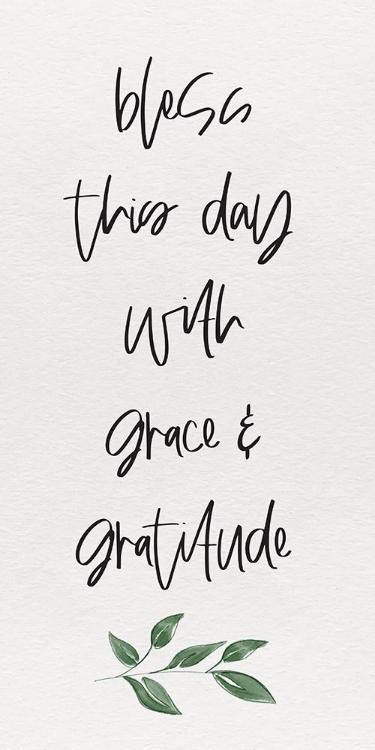 bless
this day
with
grace &
gratitude